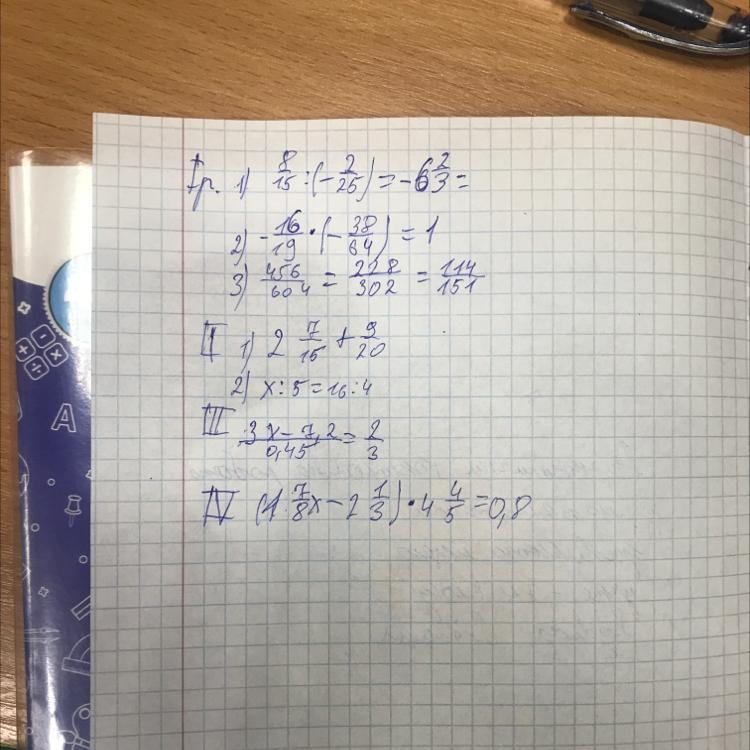 Iр. 1) 8/15 : (- 2/25) = - 6 2/3 =
2) - 16/19 · (- 38/64) = 1
3) 456/604 = 228/302 = 114/151
II 1) 2 7/15 + 9/20
2) x : 5 = 16 : 4
III (3x - 7,2)/0,45 = 2/3
IV (1 7/8 x - 2 1/3) · 4 4/5 = 0,8
A